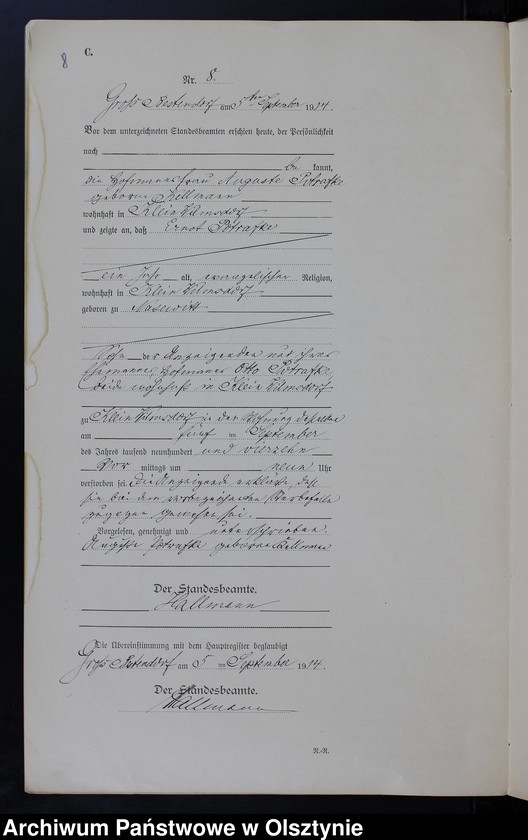 8
C.
Nr. 8.
Groß Bestendorf am 5ten September 1914.
Vor dem unterzeichneten Standesbeamten erschien heute, der Persönlichkeit
nach
be kannt,
die Hofmannsfrau Auguste Potrafke
geborene Kellmann
wohnhaft in Klein Wilmsdorf
und zeigte an, daß Ernst Potrafke
ein Jahr alt, evangelischer Religion,
wohnhaft in Klein Wilmsdorf
geboren zu
Sohn der Anzeigenden und ihres
Ehemannes, Hofmannes Otto Potrafke,
beide wohnhaft in Klein Wilmsdorf
zu Klein Wilmsdorf in der Wohnung derselben
am fünf ten September
des Jahres tausend neunhundert und vierzehn
Vor mittags um neun Uhr
verstorben sei. Die Anzeigende erklärte, daß
sie bei dem vorbezeichneten Sterbefalle
zugegen gewesen sei.
Vorgelesen, genehmigt und unterschrieben.
Auguste Potrafke geborene Kellmann
Der Standesbeamte.
Hallmann
Die Übereinstimmung mit dem Hauptregister beglaubigt
Groß Bestendorf am 5 ten September 1914.
Der Standesbeamte.
Hallmann
N.-R.
Archiwum Państwowe w Olsztynie